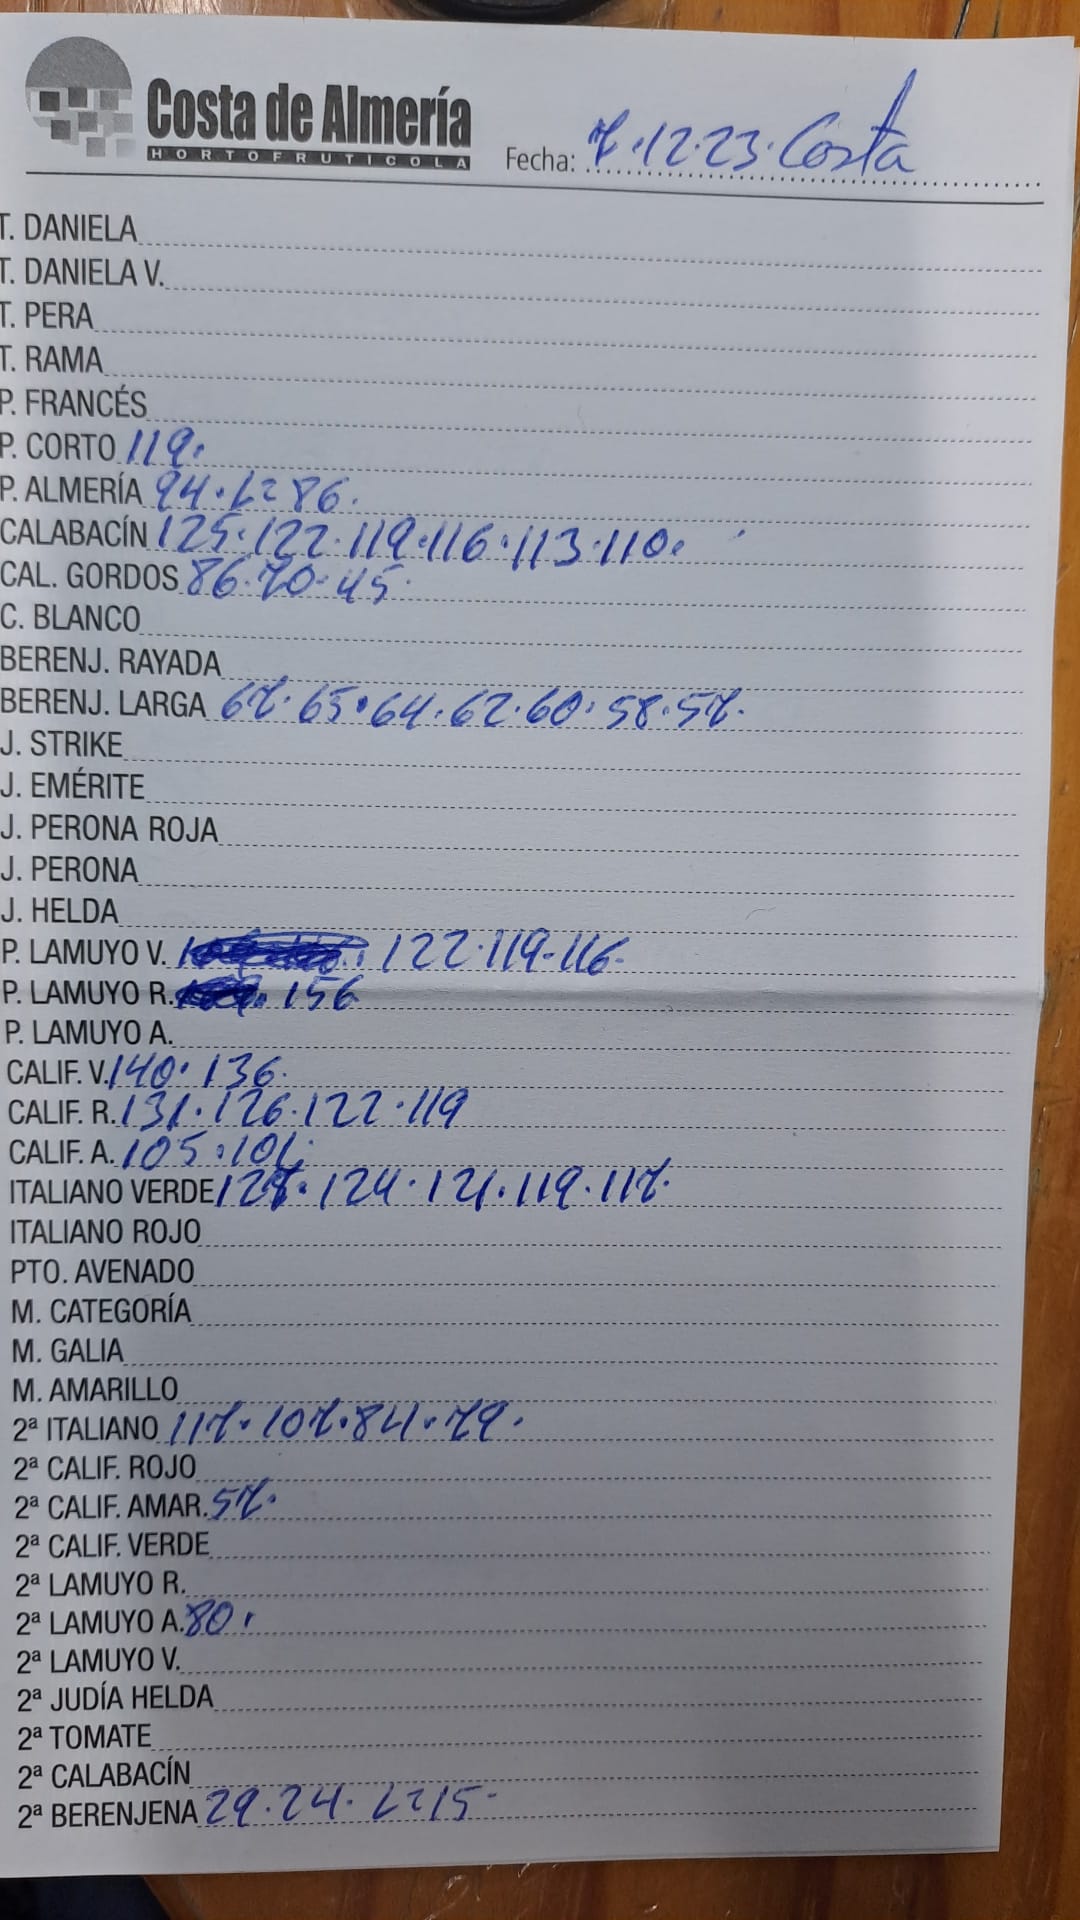 Costa de Almería
HORTOFRUTICOLA
Fecha: 7.12.23. Costa
T. DANIELA
T. DANIELA V.
T. PERA
T. RAMA
P. FRANCÉS
P. CORTO 119.
P. ALMERÍA 94. L= 86.
CALABACÍN 125. 122. 119. 116. 113. 110.
CAL. GORDOS 86. 70. 45.
C. BLANCO
BERENJ. RAYADA
BERENJ. LARGA 67. 65. 64. 62. 60. 58. 57.
J. STRIKE
J. EMÉRITE
J. PERONA ROJA
J. PERONA
J. HELDA
P. LAMUYO V. 122. 119. 116.
P. LAMUYO R. 156
P. LAMUYO A.
CALIF. V. 140. 136.
CALIF. R. 131. 126. 122. 119
CALIF. A. 105. 101.
ITALIANO VERDE 127. 124. 121. 119. 117.
ITALIANO ROJO
PTO. AVENADO
M. CATEGORÍA
M. GALIA
M. AMARILLO
2ª ITALIANO 117. 107. 84. 79.
2ª CALIF. ROJO
2ª CALIF. AMAR. 57.
2ª CALIF. VERDE
2ª LAMUYO R.
2ª LAMUYO A. 80.
2ª LAMUYO V.
2ª JUDÍA HELDA
2ª TOMATE
2ª CALABACÍN
2ª BERENJENA 29. 24. L= 15.